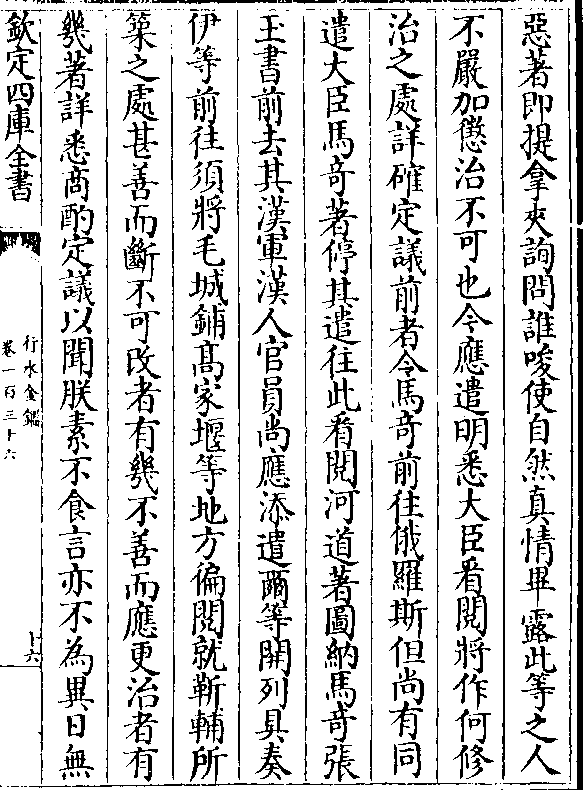 惡著即提拿夾詢問誰唆使自然真情畢露此等之人
不嚴加懲治不可也今應遣明悉大臣看閱將作何修
治之處詳確定議前者令馬竒前往俄羅斯但尚有同
遣大臣馬竒著停其遣往此看閱河道著圖納馬竒張
玉書前去其漢軍漢人官員尚應添遣爾等開列具奏
伊等前往須將毛城鋪髙家堰等地方徧閱就靳輔所
築之處甚善而斷不可改者有幾不善而應更治者有
幾著詳悉商酌定議以聞朕素不食言亦不為異日無
欽定四庫全書
行水金鑑
卷一百三十六
十六